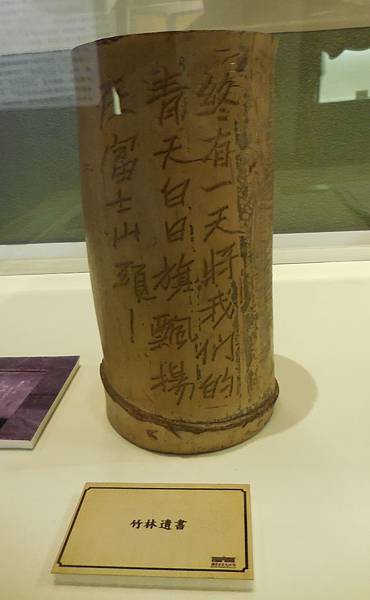 終有一天將我們的
青天白日旗飄揚
在富士山頭！
竹林遺書